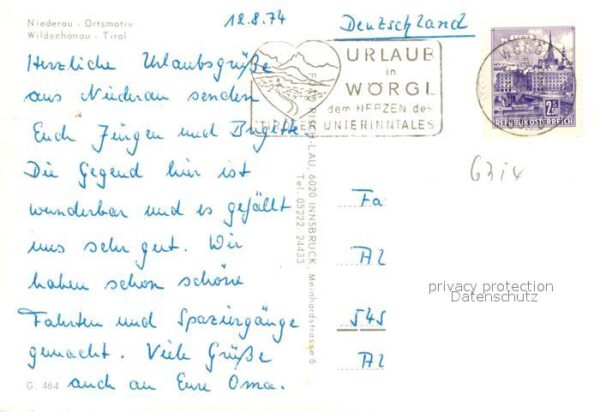 Niederau - Ortsmotiv
Wildschönau - Tirol
12.8.74
Deutschland
Herzliche Urlaubsgrüße
aus Niederau senden
Euch Jürgen und Brigitte.
Die Gegend hier ist
wunderbar und es gefällt
uns sehr gut. Wir
haben schon schöne
Fahrten und Spaziergänge
gemacht. Viele Grüße
auch an Eure Oma.
G 464
URLAUB
in
WÖRGL
dem HERZEN des
TIROLER UNTERINNTALES
WÖRGL
2.50
REPUBLIK ÖSTERREICH
6020 INNSBRUCK, Meinhardstrasse 6
Tel. 05222 24433
Fa
A2
545
A2
privacy protection
Datenschutz